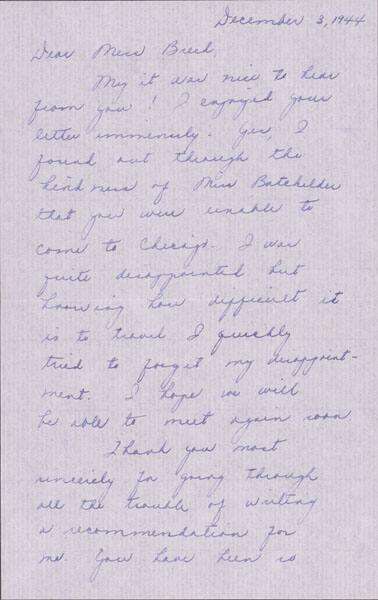 December 3, 1944
Dear Miss Breed,
My it was nice to hear
from you! I enjoyed your
letter immensely. Yes, I
found out through the
kindness of Miss Batchelder
that you were unable to
come to Chicago. I was
quite disappointed but
knowing how difficult it
is to travel I quickly
tried to forget my disappoint-
ment. I hope we will
be able to meet again soon
Thank you most
sincerely for going through
all the trouble of writing
a recommendation for
me. You have been so